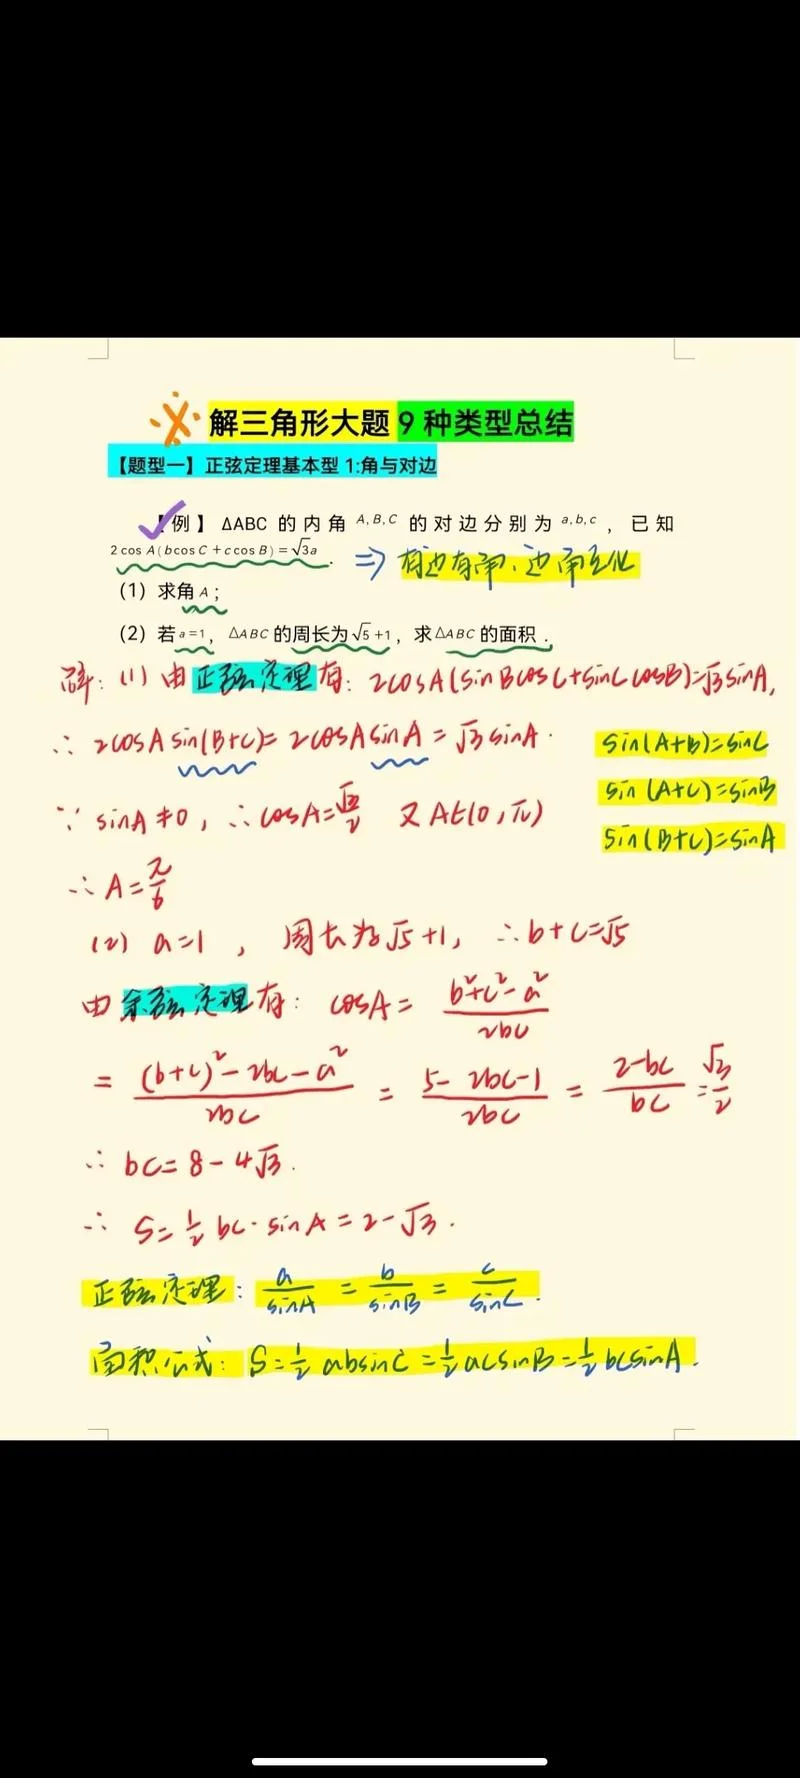 解三角形大题 9 种类型总结
【题型一】正弦定理基本型 1:角与对边
【例】 ΔABC 的内角 A,B,C 的对边分别为 a,b,c ，已知
2 cos A(bcos C + ccos B) = √3a . ⇒ 有边有角、边角互化
(1) 求角 A；
(2) 若 a=1，△ABC 的周长为 √5+1，求△ABC 的面积．
解：(1) 由正弦定理有：2cosA(sinBcosC+sinCcosB)=√3sinA,
∴ 2cosAsin(B+C)= 2cosAsinA = √3sinA.
sin(A+B)=sinC
sin(A+C)=sinB
sin(B+C)=sinA
∵ sinA≠0，∴cosA=√3/2 又A∈(0,π)
∴A=π/6
(2) a=1，周长为√5+1，∴b+c=√5
由余弦定理有：cosA= (b²+c²-a²)/2bc
= ((b+c)²-2bc-a²)/2bc = (5-2bc-1)/2bc = (2-bc)/bc = √3/2
∴ bc=8-4√3.
∴ S=1/2 bc·sinA=2-√3.
正弦定理：a/sinA = b/sinB = c/sinC.
面积公式：S=1/2 absinC=1/2 acsinB=1/2 bcsinA.